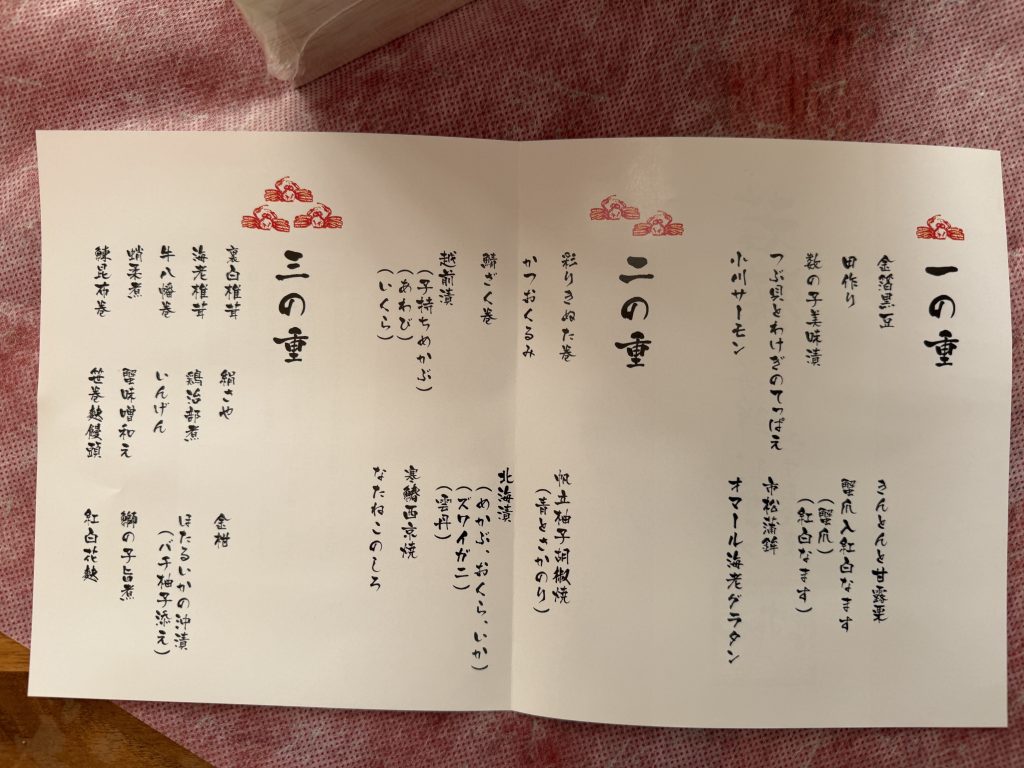 一の重
金箔黒豆
田作り
数の子美味漬
つぶ貝とわけぎのてっぱえ
小川サーモン
きんとんと甘露栗
蟹爪入紅白なます
(蟹爪)
(紅白なます)
市松蒲鉾
オマール海老グラタン
二の重
彩りきぬた巻
かつおくるみ
鯖ざく巻
越前漬
(子持ちめかぶ)
(あわび)
(いくら)
帆立柚子胡椒焼
(青とさかのり)
北海漬
(めかぶ、おくら、いか)
(ズワイガニ)
(雲丹)
寒鰆西京焼
なたねこのしろ
三の重
裏白椎茸
海老椎茸
牛八幡巻
蛸柔煮
鰊昆布巻
絹さや
鶏治部煮
いんげん
蟹味噌和え
笹巻麩饅頭
金柑
ほたるいかの沖漬
(バチ柚子添え)
鰤の子旨煮
紅白花麩